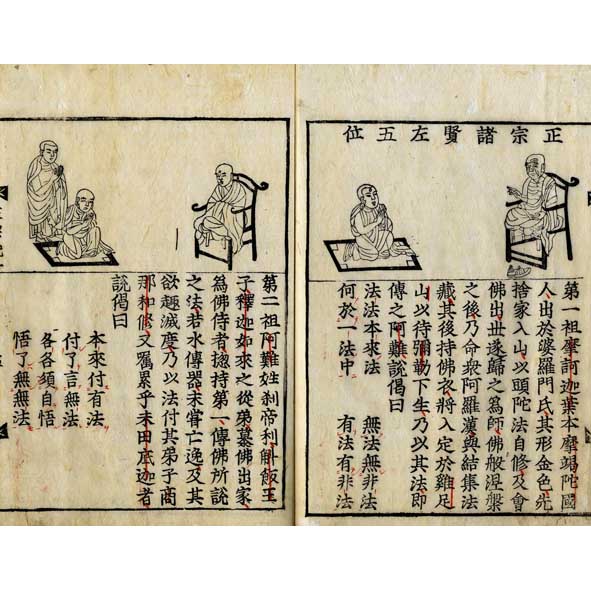 正宗諸賢左五位
第一祖摩訶迦葉本摩竭陀國
人出於婆羅門氏其形金色先
捨家入山以頭陀法自修及會
佛出丗遂歸之爲師佛般涅槃
之後乃命衆阿羅漢與結集法
藏其後持佛衣將入定於雞足
山以待彌勒下生乃以其法即
傳之阿難說偈曰
法法本來法　無法無非法
何於一法中　有法有非法
第二祖阿難姓刹帝利斛飯王
子釋迦如來之從弟慕佛出家
爲佛侍者揔持第一傳佛所說
之法若水傳器未甞亡逸及其
欲趣滅度乃以法付其弟子商
那和修又囑累乎末田底迦者
說偈曰
本來付有法
付了言無法
各各須自悟
悟了無無法